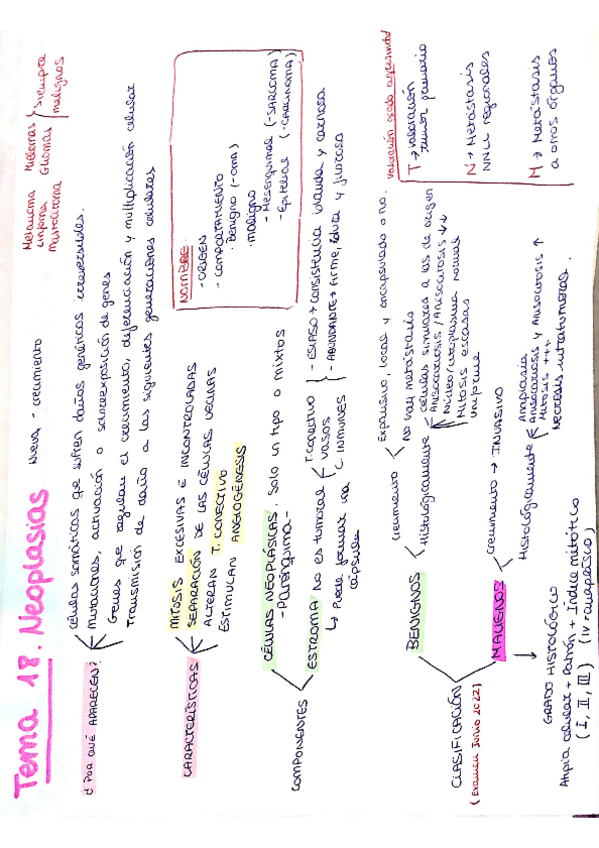 Tema 18. Neoplasias
Nueva - crecimiento
Melanoma
Linfoma
Mastocitoma
Mielomas
Gliomas
siempre
malignos
¿POR QUÉ APARECEN?
Células somáticas que sufren daños genéticos irreversibles.
Mutaciones, activación o sobreexposición de genes
Genes que regulan el crecimiento, diferenciación y multiplicación celular
Transmisión de daño a las siguientes generaciones celulares
CARACTERÍSTICAS
MITOSIS EXCESIVAS E INCONTROLADAS
SEPARACIÓN DE LAS CÉLULAS VECINAS
ALTERAN T. CONECTIVO
ESTIMULAN ANGIOGÉNESIS
NOMBRE.
- ORIGEN
- COMPORTAMIENTO
. Benigno (-oma)
. Maligno
- Mesenquimal (-SARCOMA)
- Epitelial (-CARCINOMA)
COMPONENTES
CÉLULAS NEOPLÁSICAS. Solo un tipo o mixtos
- Parénquima -
ESTROMA No es tumoral
T. conectivo
vasos
C. INMUNES
- ESCASO → Consistencia blanda y carnosa
- ABUNDANTE → Firme, dura y fibrosa
↳ Puede formar una
cápsula
CLASIFICACIÓN
(Examen Junio 2022)
BENIGNOS
Crecimiento
Expansivo, local y encapsulado o no.
No hay metástasis
Histológicamente
células similares a las de origen
Anisocariosis / Anisocitosis ↓↓
Núcleo/citoplasma normal
Mitosis escasas
Uniforme
MALIGNOS
Crecimiento → INVASIVO
Histológicamente
Anaplasia
Anisocariosis y Anisocitosis ↑
Mitosis +++
Necrosis intratumoral.
↓
GRADO HISTOLÓGICO
Atipia celular + Patrón + Índice mitótico
(I, II, III) (IV = anaplásico)
Valoración grado
T → valoración
tumor primario
N → Metástasis
NNLL regionales
M → Metástasis
a otros órganos